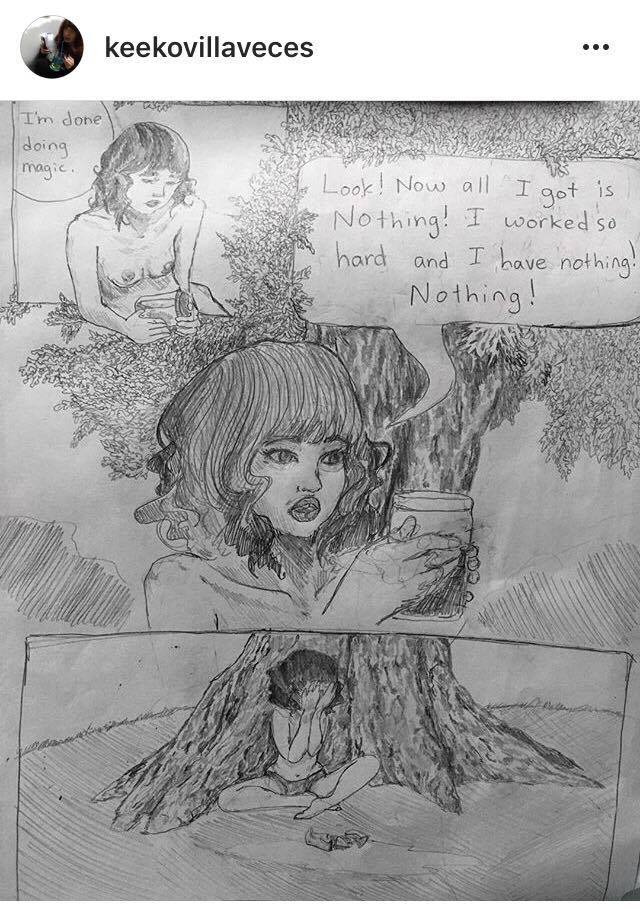 keekovillaveces
I'm done
doing
magic.
Look! Now all I got is
Nothing! I worked so
hard and I have nothing!
Nothing!